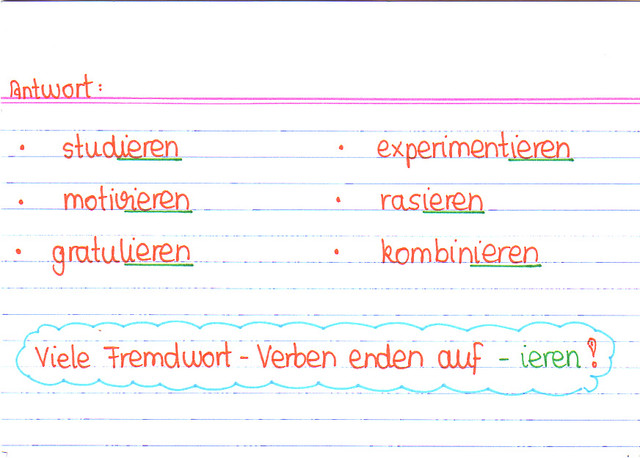 Antwort:
• studieren • experimentieren
• motivieren • rasieren
• gratulieren • kombinieren
Viele Fremdwort-Verben enden auf -ieren!